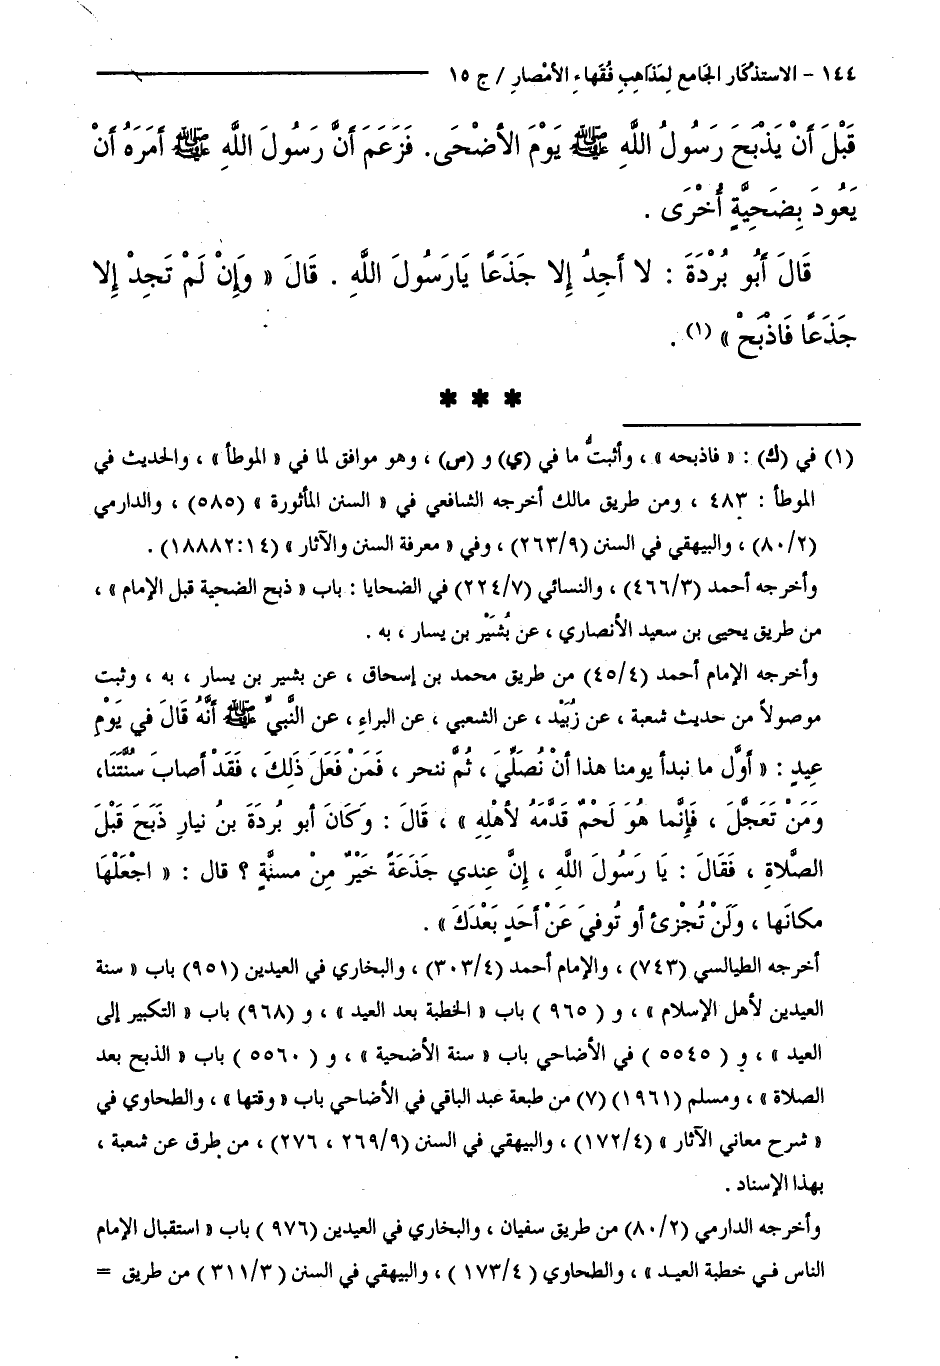 ١٤٤ - الاستذكار الجامع لمذاهب فقهاء الأمصار / ج ١٥
قَبْلَ أَنْ يَذْبَحَ رَسُولُ اللَّهِ ﷺ يَوْمَ الأَضْحَى. فَزَعَمَ أَنَّ رَسُولَ اللَّهِ ﷺ أَمَرَهُ أَنْ
يَعُودَ بِضَحِيَّةٍ أُخْرَى .
قَالَ أَبُو بُرْدَةَ : لا أَجِدُ إِلا جَذَعًا يَارَسُولَ اللَّهِ . قَالَ « وَإِنْ لَمْ تَجِدْ إِلا
جَذَعًا فَاذْبَحْ » (١) .
***
(١) في (ك) : « فاذبحه » ، وأثبتُّ ما في (ي) و (س) ، وهو موافق لما في « الموطأ » ، والحديث في
الموطأ : ٤٨٣ ، ومن طريق مالك أخرجه الشافعي في « السنن المأثورة » (٥٨٥) ، والدارمي
(٨٠/٢) ، والبيهقي في السنن (٢٦٣/٩) ، وفي « معرفة السنن والآثار » (١٨٨٨٢:١٤) .
وأخرجه أحمد (٤٦٦/٣) ، والنسائي (٢٢٤/٧) في الضحايا : باب « ذبح الضحية قبل الإمام » ،
من طريق يحيى بن سعيد الأنصاري ، عن بُشَيْر بن يسار ، به .
وأخرجه الإمام أحمد (٤٥/٤) من طريق محمد بن إسحاق ، عن بشير بن يسار ، به ، وثبت
موصولاً من حديث شعبة ، عن زُبَيْد ، عن الشعبي ، عن البراء ، عن النَّبيِّ ﷺ أَنَّهُ قَالَ في يَوْمِ
عِيدٍ : « أوَّل ما نبدأ يومنا هذا أنْ نُصَلِّيَ ، ثُمَّ ننحر ، فَمَنْ فَعَلَ ذَلِكَ ، فَقَدْ أصابَ سُنَّتَنَا،
وَمَنْ تَعَجَّلَ ، فَإِنَّما هُوَ لَحْمٌ قَدَّمَهُ لأهْلِهِ » ، قَالَ : وَكَانَ أبو بُرْدَةَ بنُ نيارٍ ذَبَحَ قَبْلَ
الصَّلاةِ ، فَقَالَ : يَا رَسُولَ اللَّهِ ، إِنَّ عِندي جَذَعَةً خَيْرٌ مِنْ مسنَّةٍ ؟ قال : « اجْعَلْهَا
مكانَها ، وَلَنْ تُجْزِئَ أو تُوفيَ عَنْ أَحَدٍ بَعْدَكَ » .
أخرجه الطيالسي (٧٤٣) ، والإمام أحمد (٣٠٣/٤) ، والبخاري في العيدين (٩٥١) باب « سنة
العيدين لأهل الإسلام » ، و ( ٩٦٥ ) باب « الخطبة بعد العيد » ، و (٩٦٨) باب « التكبير إلى
العيد » ، و ( ٥٥٤٥ ) في الأضاحي باب « سنة الأضحية » ، و ( ٥٥٦٠ ) باب « الذبح بعد
الصلاة » ، ومسلم (١٩٦١) (٧) من طبعة عبد الباقي في الأضاحي باب « وقتها » ، والطحاوي في
« شرح معاني الآثار » (١٧٢/٤) ، والبيهقي في السنن (٢٦٩/٩ ، ٢٧٦) ، من طرق عن شعبة ،
بهذا الإسناد .
وأخرجه الدارمي (٨٠/٢) من طريق سفيان ، والبخاري في العيدين (٩٧٦ ) باب « استقبال الإمام
الناس في خطبة العيد » ، والطحاوي ( ١٧٣/٤ ) ، والبيهقي في السنن ( ٣١١/٣ ) من طريق =